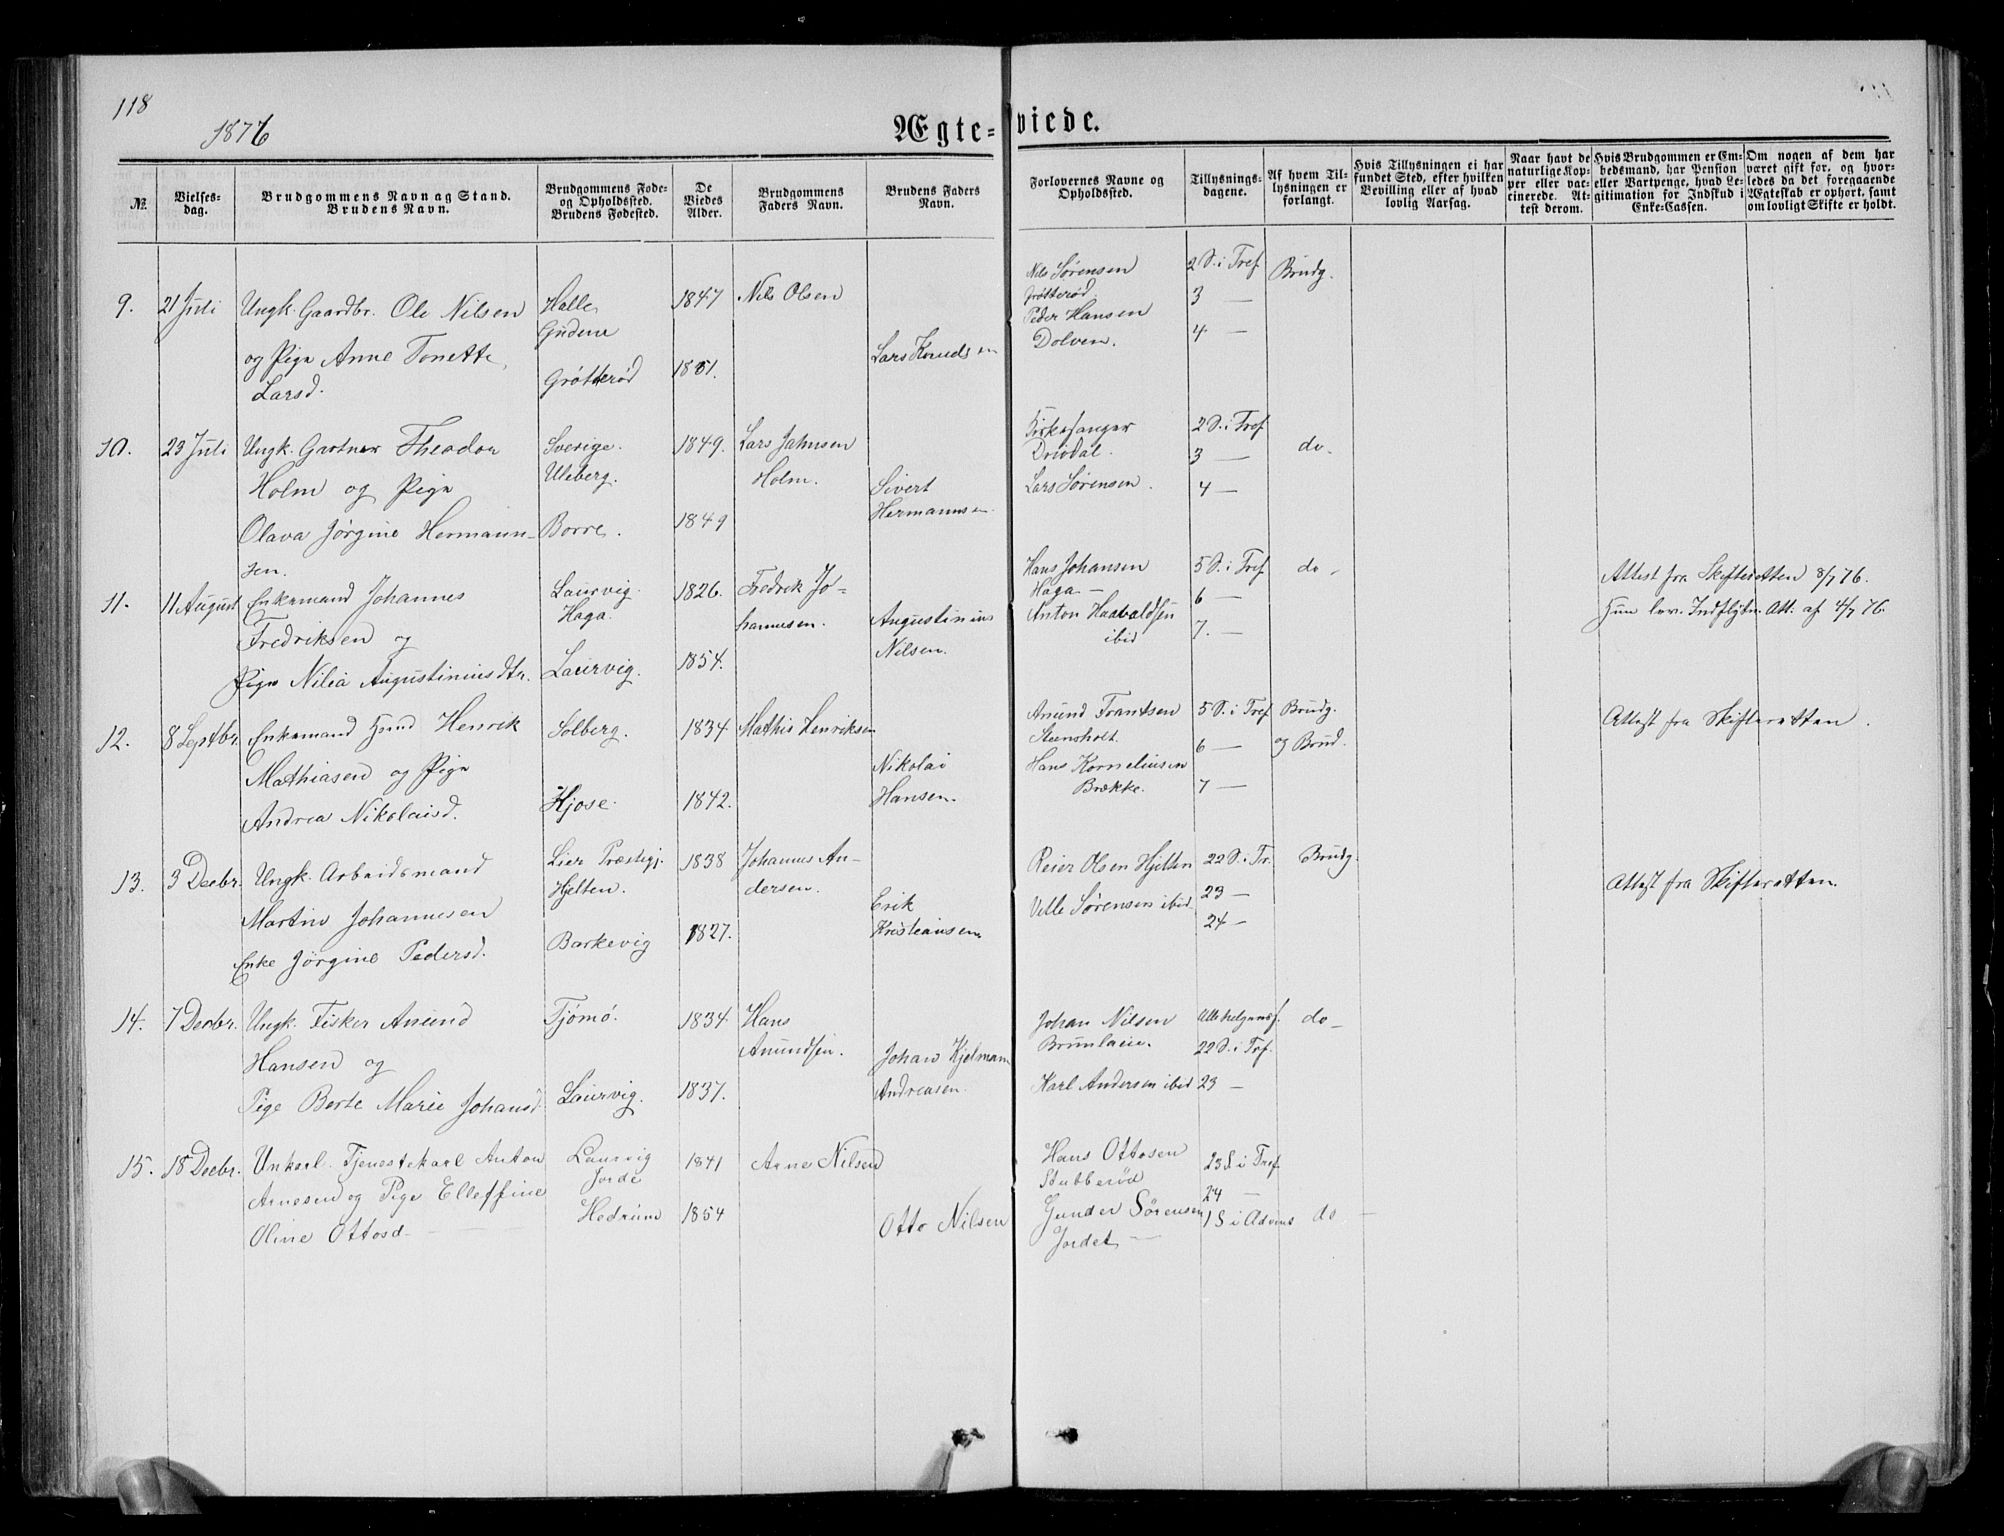 118
1876
Ægte-viede.
№.
Vielses-
dag.
Brudgommens Navn og Stand.
Brudens Navn.
Brudgommens Føde-
og Opholdssted.
Brudens Fødested.
De
Viedes
Alder.
Brudgommens
Faders Navn.
Brudens Faders
Navn.
Forlovernes Navne og
Opholdssted.
Tillysnings-
dagene.
Af hvem Til-
lysningen er
forlangt.
Hvis Tillysningen ei har
fundet Sted, efter hvilken
Bevilling eller af hvad
lovlig Aarsag.
Naar havt de
naturlige Kop-
per eller vac-
cinerede. At-
test derom.
Hvis Brudgommen er Em-
bedsmand, har Pension
eller Vartpenge, hvad Le-
gitimation for Indskud i
Enke-Cassen.
Om nogen af dem har
været gift før, og hvor-
ledes da det foregaaende
Ægteskab er ophørt, samt
om lovligt Skifte er holdt.
9. 21 Juli Ungk. Gaardbr. Ole Nilsen
og Pige Anne Tonette
Larsd.
Halle
Gudem
Grøtterød
1847
1851.
Nils Olsen
Lars Knudsen
Nils Sørensen
Grøtterød.
Peder Hansen
Dolven.
2 S. i Tref.
3 —
4 —
Brudg.
10. 23 Juli Ungk. Gartner Theodor
Holm og Pige
Olava Jørgine Hermann-
sen.
Sverige.
Uleberg.
Borre.
1849.
1849
Lars Jahnsen
Holm.
Sivert
Hermannsen.
Kirkesanger
Lars Sørensen.
2 S. i Tref
3 —
4 —
do.
11. 11 August Enkemand Johannes
Fredriksen og
Pige Nilia Augustiniusdtr.
Laurvig.
Haga.
Laurvig.
1826.
1854.
Fredrik Jo-
hannesen.
Augustinius
Nilsen.
Hans Johansen
Haga —
Anton Haavaldsen
ibid
5 S. i Tref.
6 —
7. —
do.
Attest fra Skifteretten 8/7 76.
Hun lev. Indflytn. Att. af 4/7 76.
12. 8 Septbr. Enkemand Henrik
Mathiasen og Pige
Andrea Nikolaisd.
Solberg.
Kjose.
1834.
1842.
Mathis Henriksen
Nikolai
Hansen.
Amund Frantsen
Steensholt.
Hans Kornelinsen
Brække.
5 S. i Tref
6 —
7 —
Brudg.
og Brud.
Attest fra Skifteretten.
13. 3 Decbr. Ungk. Arbeidsmand
Martin Johannesen
Enke Jørgine Pedersd.
Lier Præstegj.
Hjelten.
Barkevig
1838
1827.
Johannes An-
dersen.
Erik
Kristiansen
Reier Olsen Hjelten
Sørensen ibid
22 S. i Tr.
23 —
24 —
Brudg.
Attest fra Skifteretten.
14. 7 Decbr. Ungk. Fisker Anund
Hansen og
Pige Berte Marie Johansd.
Tjømø.
Laurvig.
1834.
1837.
Hans
Anundsen.
Johan Kjelman
Andreasen.
Johan Nilsen
Brunlanæ.
Karl Andersen ibid
Allehelgensf.
22 S. i Tref.
23 —
do
15. 18 Decbr. Unkarl. Tjenestekarl Anton
Arnesen og Pige Elleffine
Oline Ottosd
Laurvig
Jorde
Hedrum
1841
1854
Arne Nilsen
Otto Nilsen
Hans Ottosen
Stubberød
Gunder Sørensen
Jordet
23 S i Tref.
24 —
1 S i Advent
do —